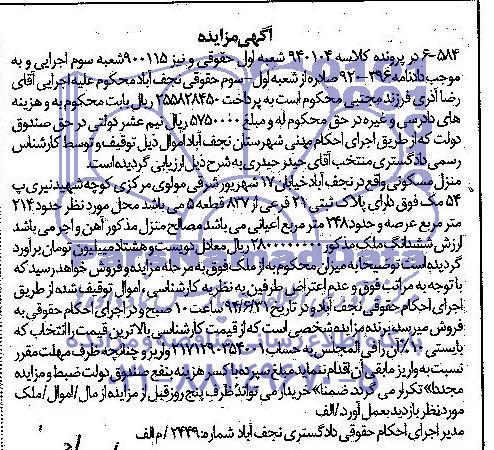 آگهی مزایده
۶-۵۸۴ در پرونده کلاسه ۹۴۰۱۰۴ شعبه اول حقوقی و نیز ۹۰۰۱۱۵ شعبه سوم اجرایی و به
موجب دادنامه ۳۹۶-۹۲ صادره از شعبه اول-سوم حقوقی نجف آباد محکوم علیه اجرایی آقای
رضا آذری فرزند مجتبی محکوم است به پرداخت ۲۵۵۸۲۸۴۵۰ ریال بابت محکوم به و هزینه
های دادرسی و غیره در حق محکوم له و مبلغ ۵۷۵۰۰۰۰ ریال نیم عشر دولتی در حق صندوق
دولت که از طریق اجرای احکام مدنی شهرستان نجف آباد اموال ذیل توقیف و توسط کارشناس
رسمی دادگستری منتخب آقای حیدر حیدری به شرح ذیل ارزیابی گردیده است.
منزل مسکونی واقع در نجف آباد خیابان ۱۷ شهریور شرقی مولوی مرکزی کوچه شهید نیری پ
۵۴ مک فوق دارای پلاک ثبتی ۲۱ فرعی از ۸۲۷ قطعه ۵ می باشد محل مورد نظر حدود ۲۱۴
متر مربع عرصه و حدود ۲۴۸ متر مربع اعیانی می باشد مصالح منزل مذکور آهن و آجر می باشد
ارزش ششدانگ ملک مذکور ۲۸۰۰۰۰۰۰۰۰ ریال معادل دویست و هشتاد میلیون تومان برآورد
گردیده است توضیحا به میزان محکوم به از ملک فوق به مرحله مزایده و فروش خواهد رسید که
با توجه به مراتب فوق و عدم اعتراض طرفین به نظریه کارشناسی، اموال توقیف شده از طریق
اجرای احکام حقوقی نجف آباد در تاریخ ۹۴/۶/۳۱ ساعت ۱۰ صبح و در اجرای احکام حقوقی به
فروش میرسد برنده مزایده شخصی است که از قیمت کارشناسی بالاترین قیمت را انتخاب که
بایستی ۱۰٪ آن را فی المجلس به حساب ۲۱۷۱۲۹۰۲۵۴۰۰۱ واریز و چنانچه ظرف مهلت مقرر
نسبت به واریز مابقی آن اقدام ننماید مبلغ سپرده با کسر هزینه بنفع صندوق دولت ضبط و مزایده
مجددا تکرار می گردد ضمنا خریدار می تواند ظرف پنج روز قبل از مزایده از مال / اموال / ملک
مورد نظر بازدید بعمل آورد / الف
مدیر اجرای احکام حقوقی دادگستری نجف آباد شماره: ۲۴۴۹ / م الف
ParsNamadData
پایگاه اطلاع رسانی مناقصه و مزایده
۰۲۱-۸۸۳۴۹۶۷۰-۵